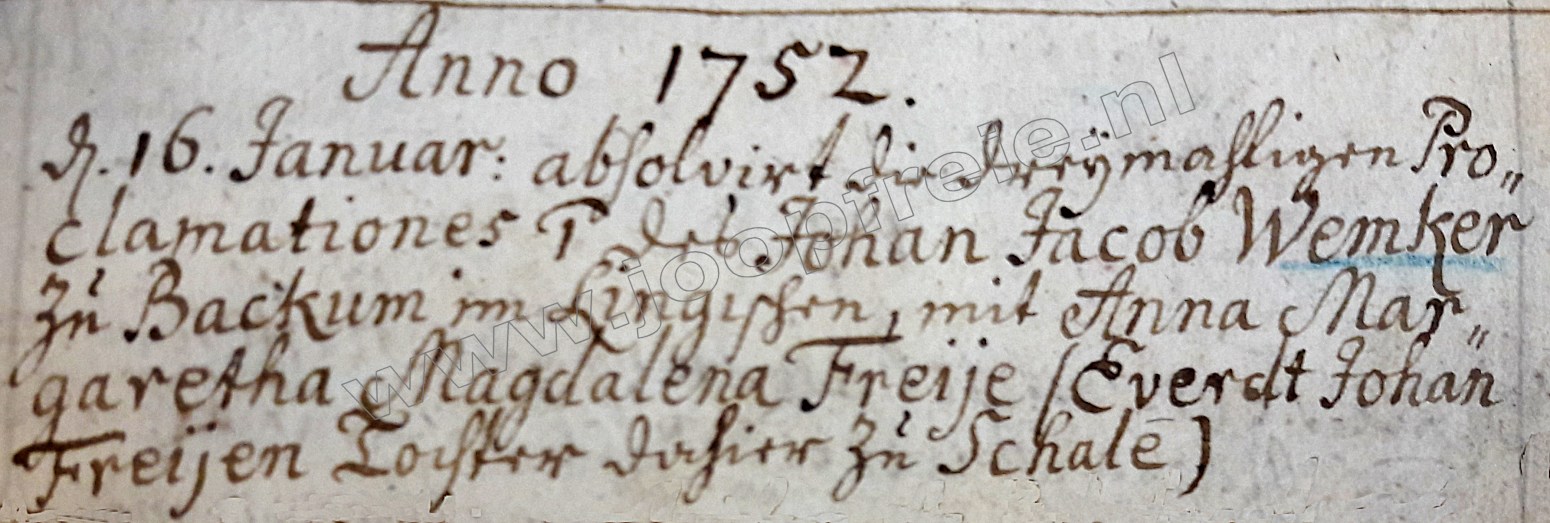 Anno 1752.
d. 16. Januar: absolvirt die dreÿmahligen Pro„
clamationes P des Johan Jacob Wemker
zu Backum im Lingischen, mit Anna Mar„
garetha Magdalena Freije (Everdt Johan
Freijen Tochter dahier zu Schalē)
www.joopfreie.nl